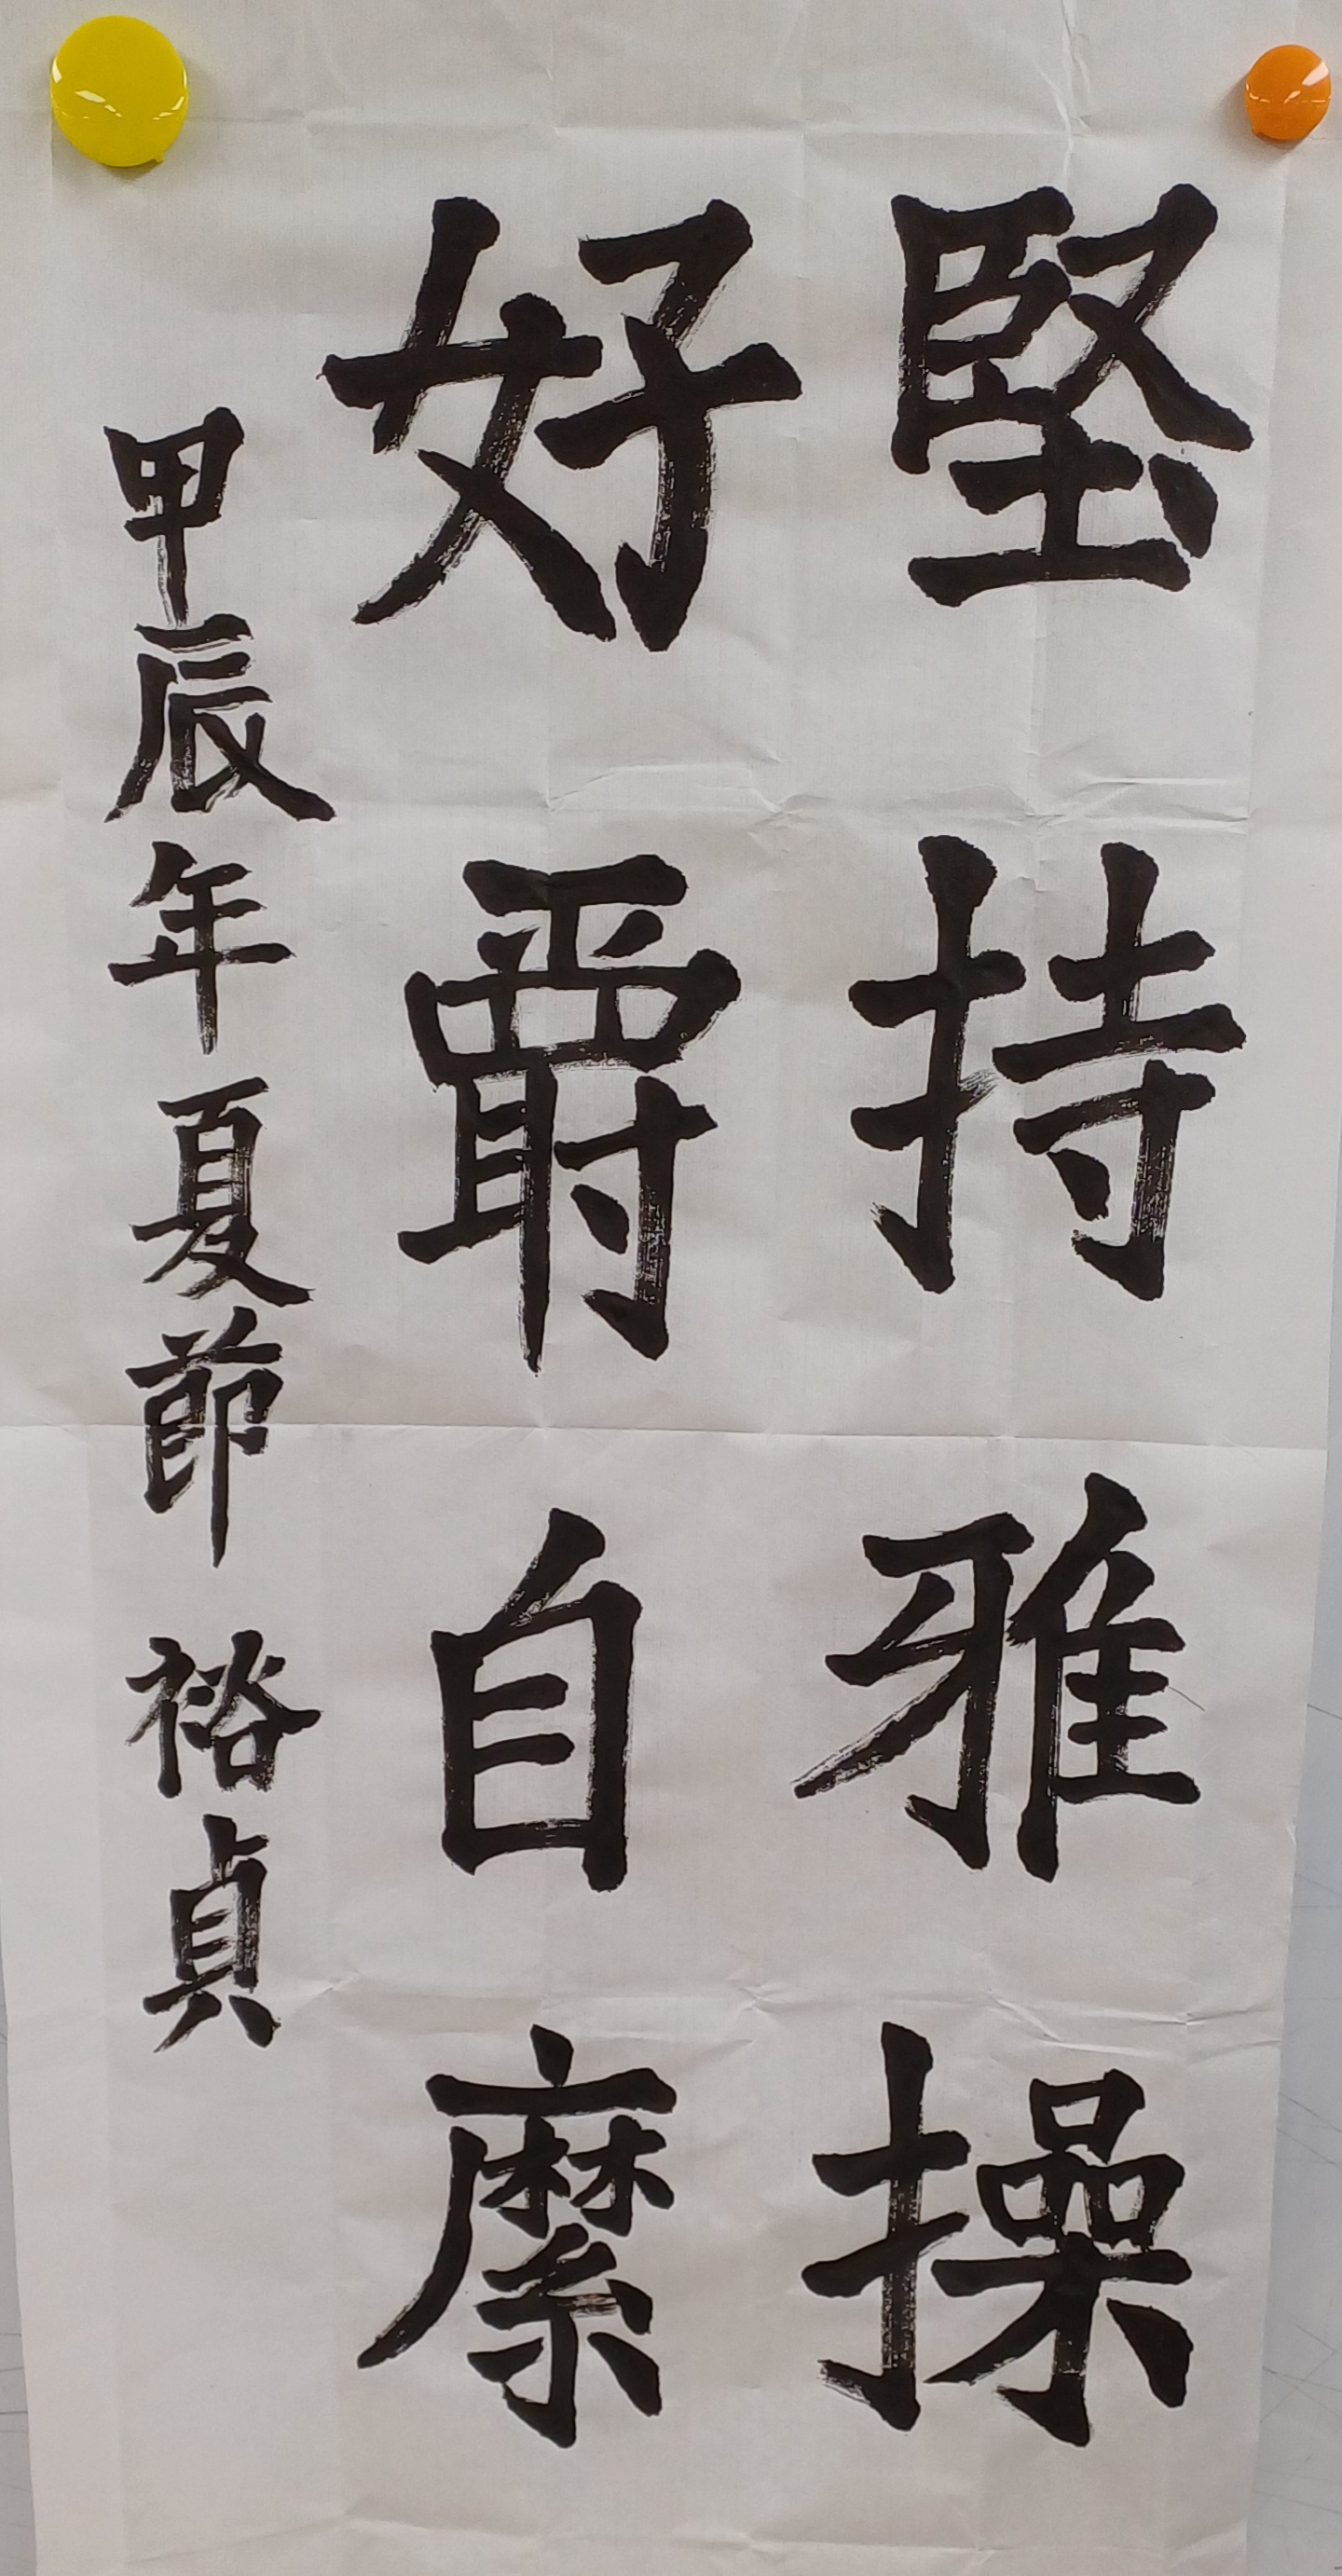 堅持雅操
好爵自縻
甲辰年夏節 裕貞